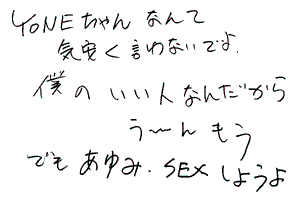 YONEちゃん なんて
気安く言わないでよ.
僕の いい人なんだから
う〜ん もう
でも あゆみ. SEX しようよ